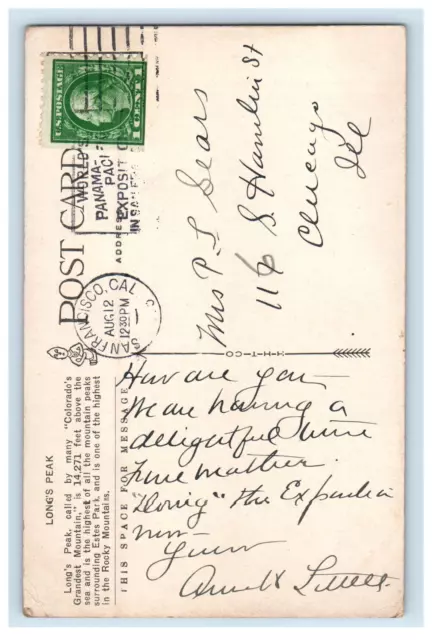 LONG'S PEAK
Long's Peak, called by many "Colorado's
Grandest Mountain," is 14,271 feet above the
sea and is the highest of all the mountain peaks
surrounding Estes Park, and is one of the highest
in the Rocky Mountains.
POST CARD
THIS SPACE FOR MESSAGE
ADDRESS
U.S. POSTAGE
1 CENT 1
WORLD'S
PANAMA-
PACI
EXPOSIT
IN SAN FRA
SAN FRANCISCO, CAL
AUG 12
12 30 PM
Mrs P L Sears
116 S. Hamlin St
Chicago
Ill
How are you—
We are having a
delightful time
Fine weather.
"Doing" the Expo
now—
Yours